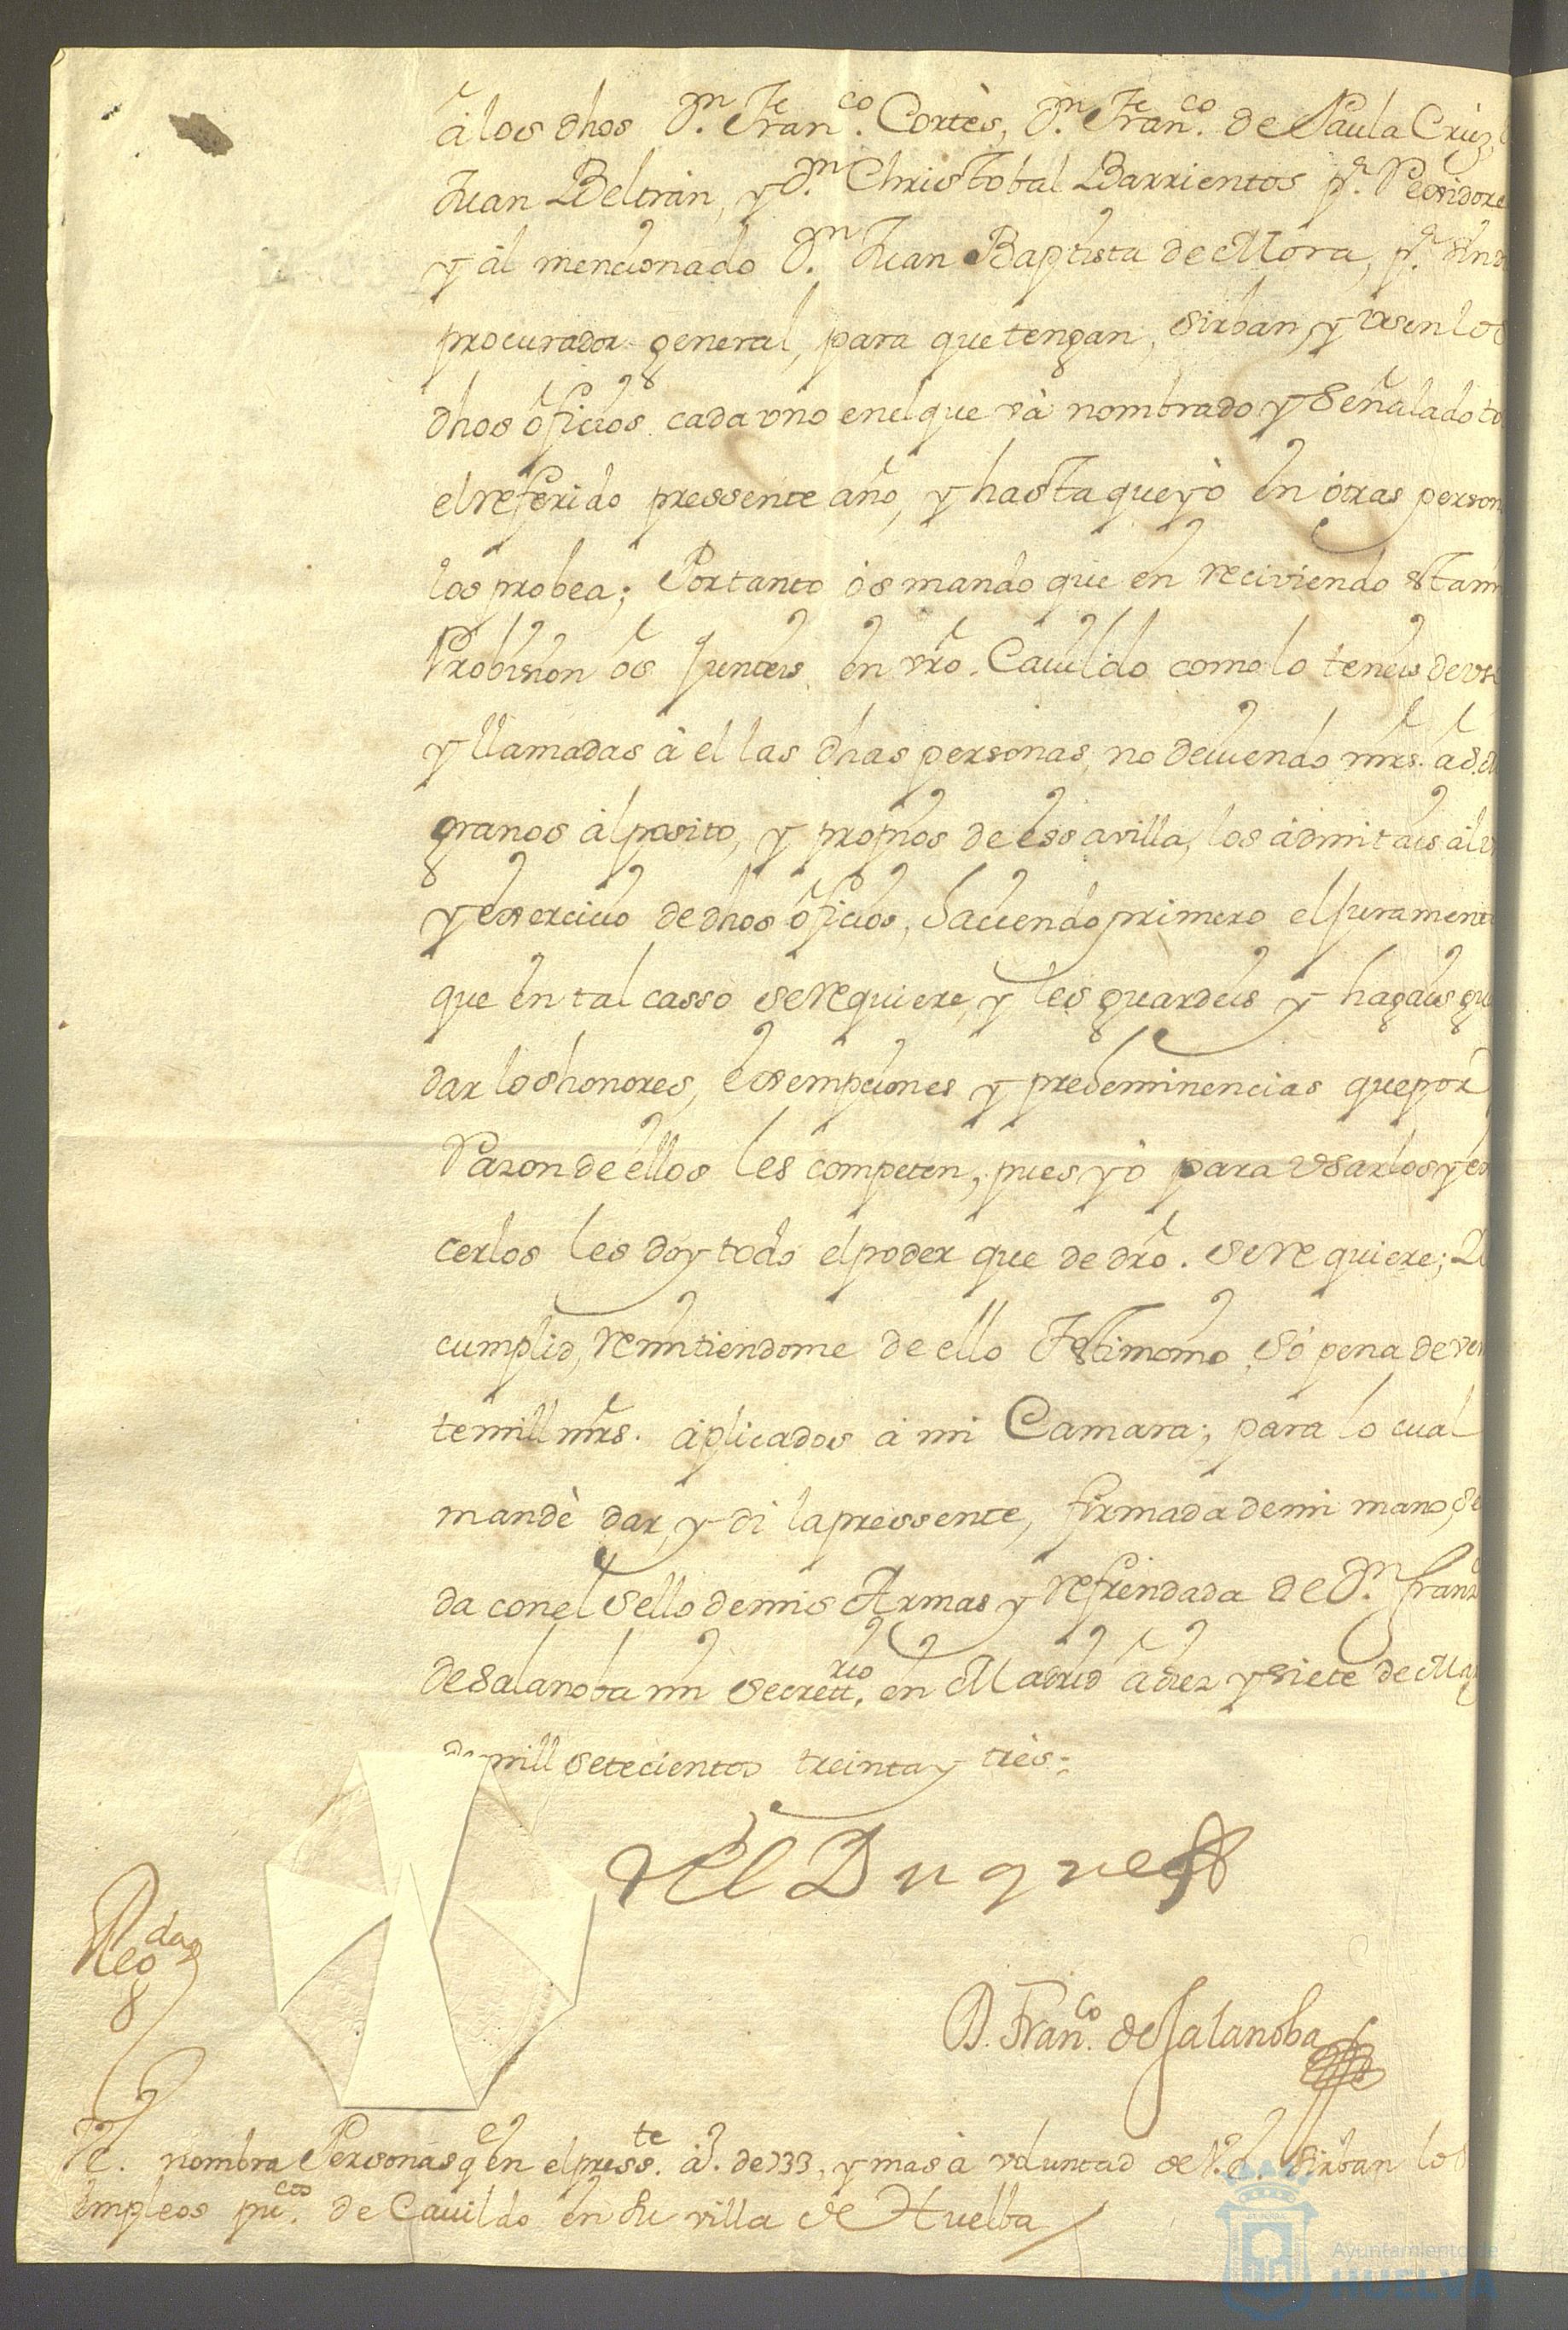 à los dhos Dn. Franco. Cortès, Dn. Franco. de Paula Cruz,
Juan Beltrán, y Dn. Christobal Barrientos pr. Regidore
y al mencionado Dn. Juan Baptista de Mora, pr. Sind
procurador general, para que tengan, sirban, y vsen los
dhos ofícios cada vno en el que và nombrado y Señalado to
el referido pressente año, y hasta que yò en òtras person
los probea; Por tanto òs mando que en reciviendo esta mi
Probision òs junteis en vro. Cavildo como lo teneis de vso
y llamadas à el las dhas personas, no deviendo mrs. a
granos àl posito, y propios de essa villa, los àdmitais àl v
y exsercicio de dhos ofícios, Haciendo primero el jurament
que en tal casso se requiere, y les guardeis y hagais gu
dar los honores, exsempciones y preheminencias que por
Razon de ellos les competen, pues yò para vsarlos y ex
cerlos les doy todo el poder que de dro. se requiere;
cumplid, remitiendome de ello Testimonio, sò pena de vein
te mill mrs. àplicados à mi Camara; para lo cual
mandè dar, y di la pressente, firmada de mi mano, se
da con el Sello de mis Armas y refrendada de Dn. Franz
de Salanoba mi Secrettrio. en Madrid à diez y siete de Ma
de mill setecientos treinta y très.
El Duque
Reg.das
8
D. Franco. de Salanoba
V.e. nombra Personas qe. en el presste. añ. de 733, y mas à voluntad de V.e. Sirban los
Empleos pucos. de Cavildo en su villa de Huelba
Ayuntamiento de
HUELVA